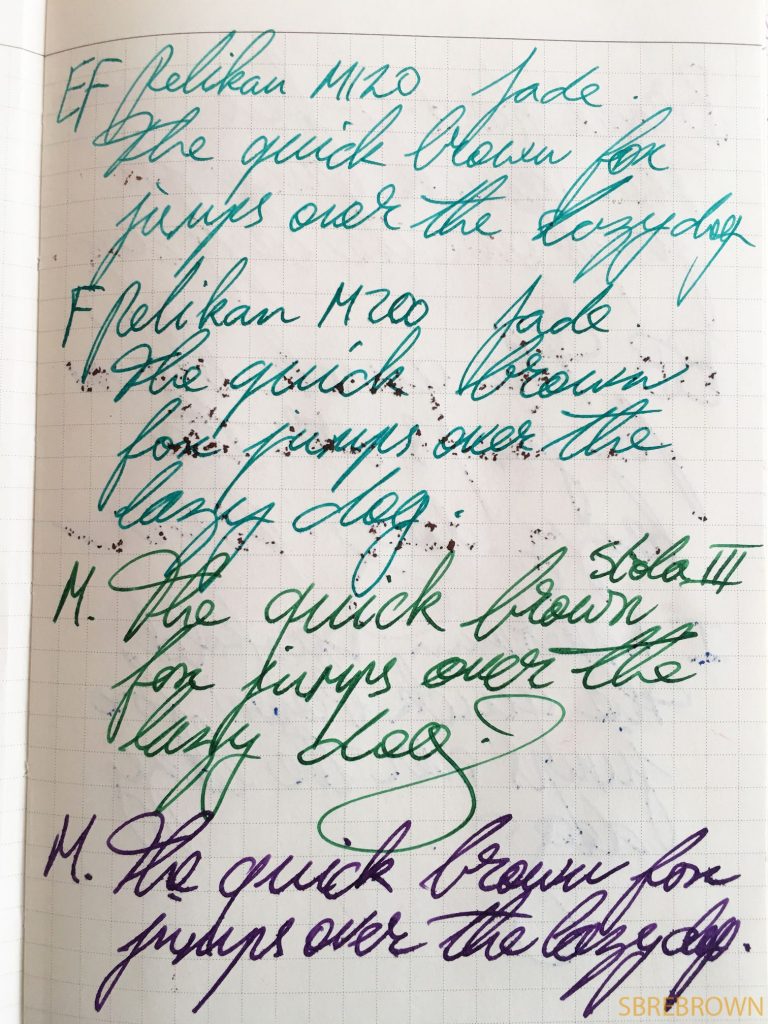 EF Pelikan M120 Jade.
The quick brown fox
jumps over the lazy dog
F Pelikan M200 Jade
The quick brown
fox jumps over the
lazy dog.
Stola III
M. The quick brown
fox jumps over the
lazy dog.
M. The quick brown fox
jumps over the lazy dog.
SBREBROWN